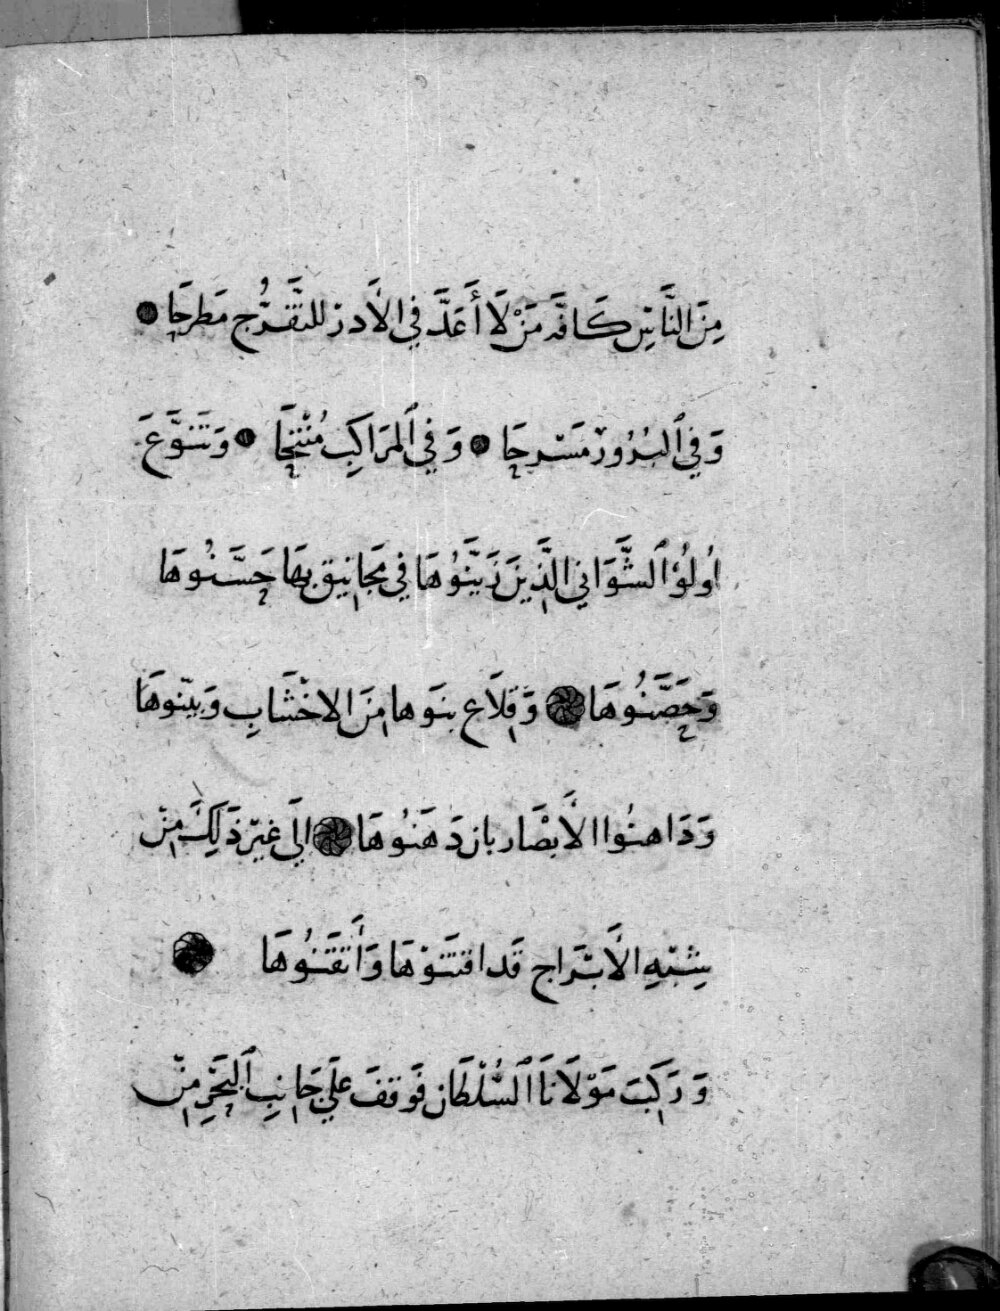 مِنَ النَّاسِ كَافَّه مَنْ لَا أَعَدَّ فِي الأَدر للتَّفَرُّج مَطرحَا
وَفِي ٱلبُرُورْ مَسْرحَا وَفِي ٱلمَرَاكِبِ مُنْتَحَا وَتَنَوَّعَ
اُولُوْ ٱلشَّوَانِي الَّذِينَ زَيَّنَوُهَا فِي مَجَانِيق بِهَا حَسَّنُوهَا
وَحَصَّنُوهَا وَقِلَاع بنَوها مِنَ الاخْشَابِ وَبيّنوهَا
وَدَاهنُوا الأَبصَار بان دَهَنُوهَا اِلَى غيرْ ذَلِكَ مِنْ
شِبْهِ الأَبْرَاج قَد اقتَنَوْهَا وَأَتقَنُوهَا
وَرَكِبَ مَوْلَانَا ٱلسُّلْطَان فَوَقفَ علَي جَانِبِ ٱلبَحْرِ مِنْ